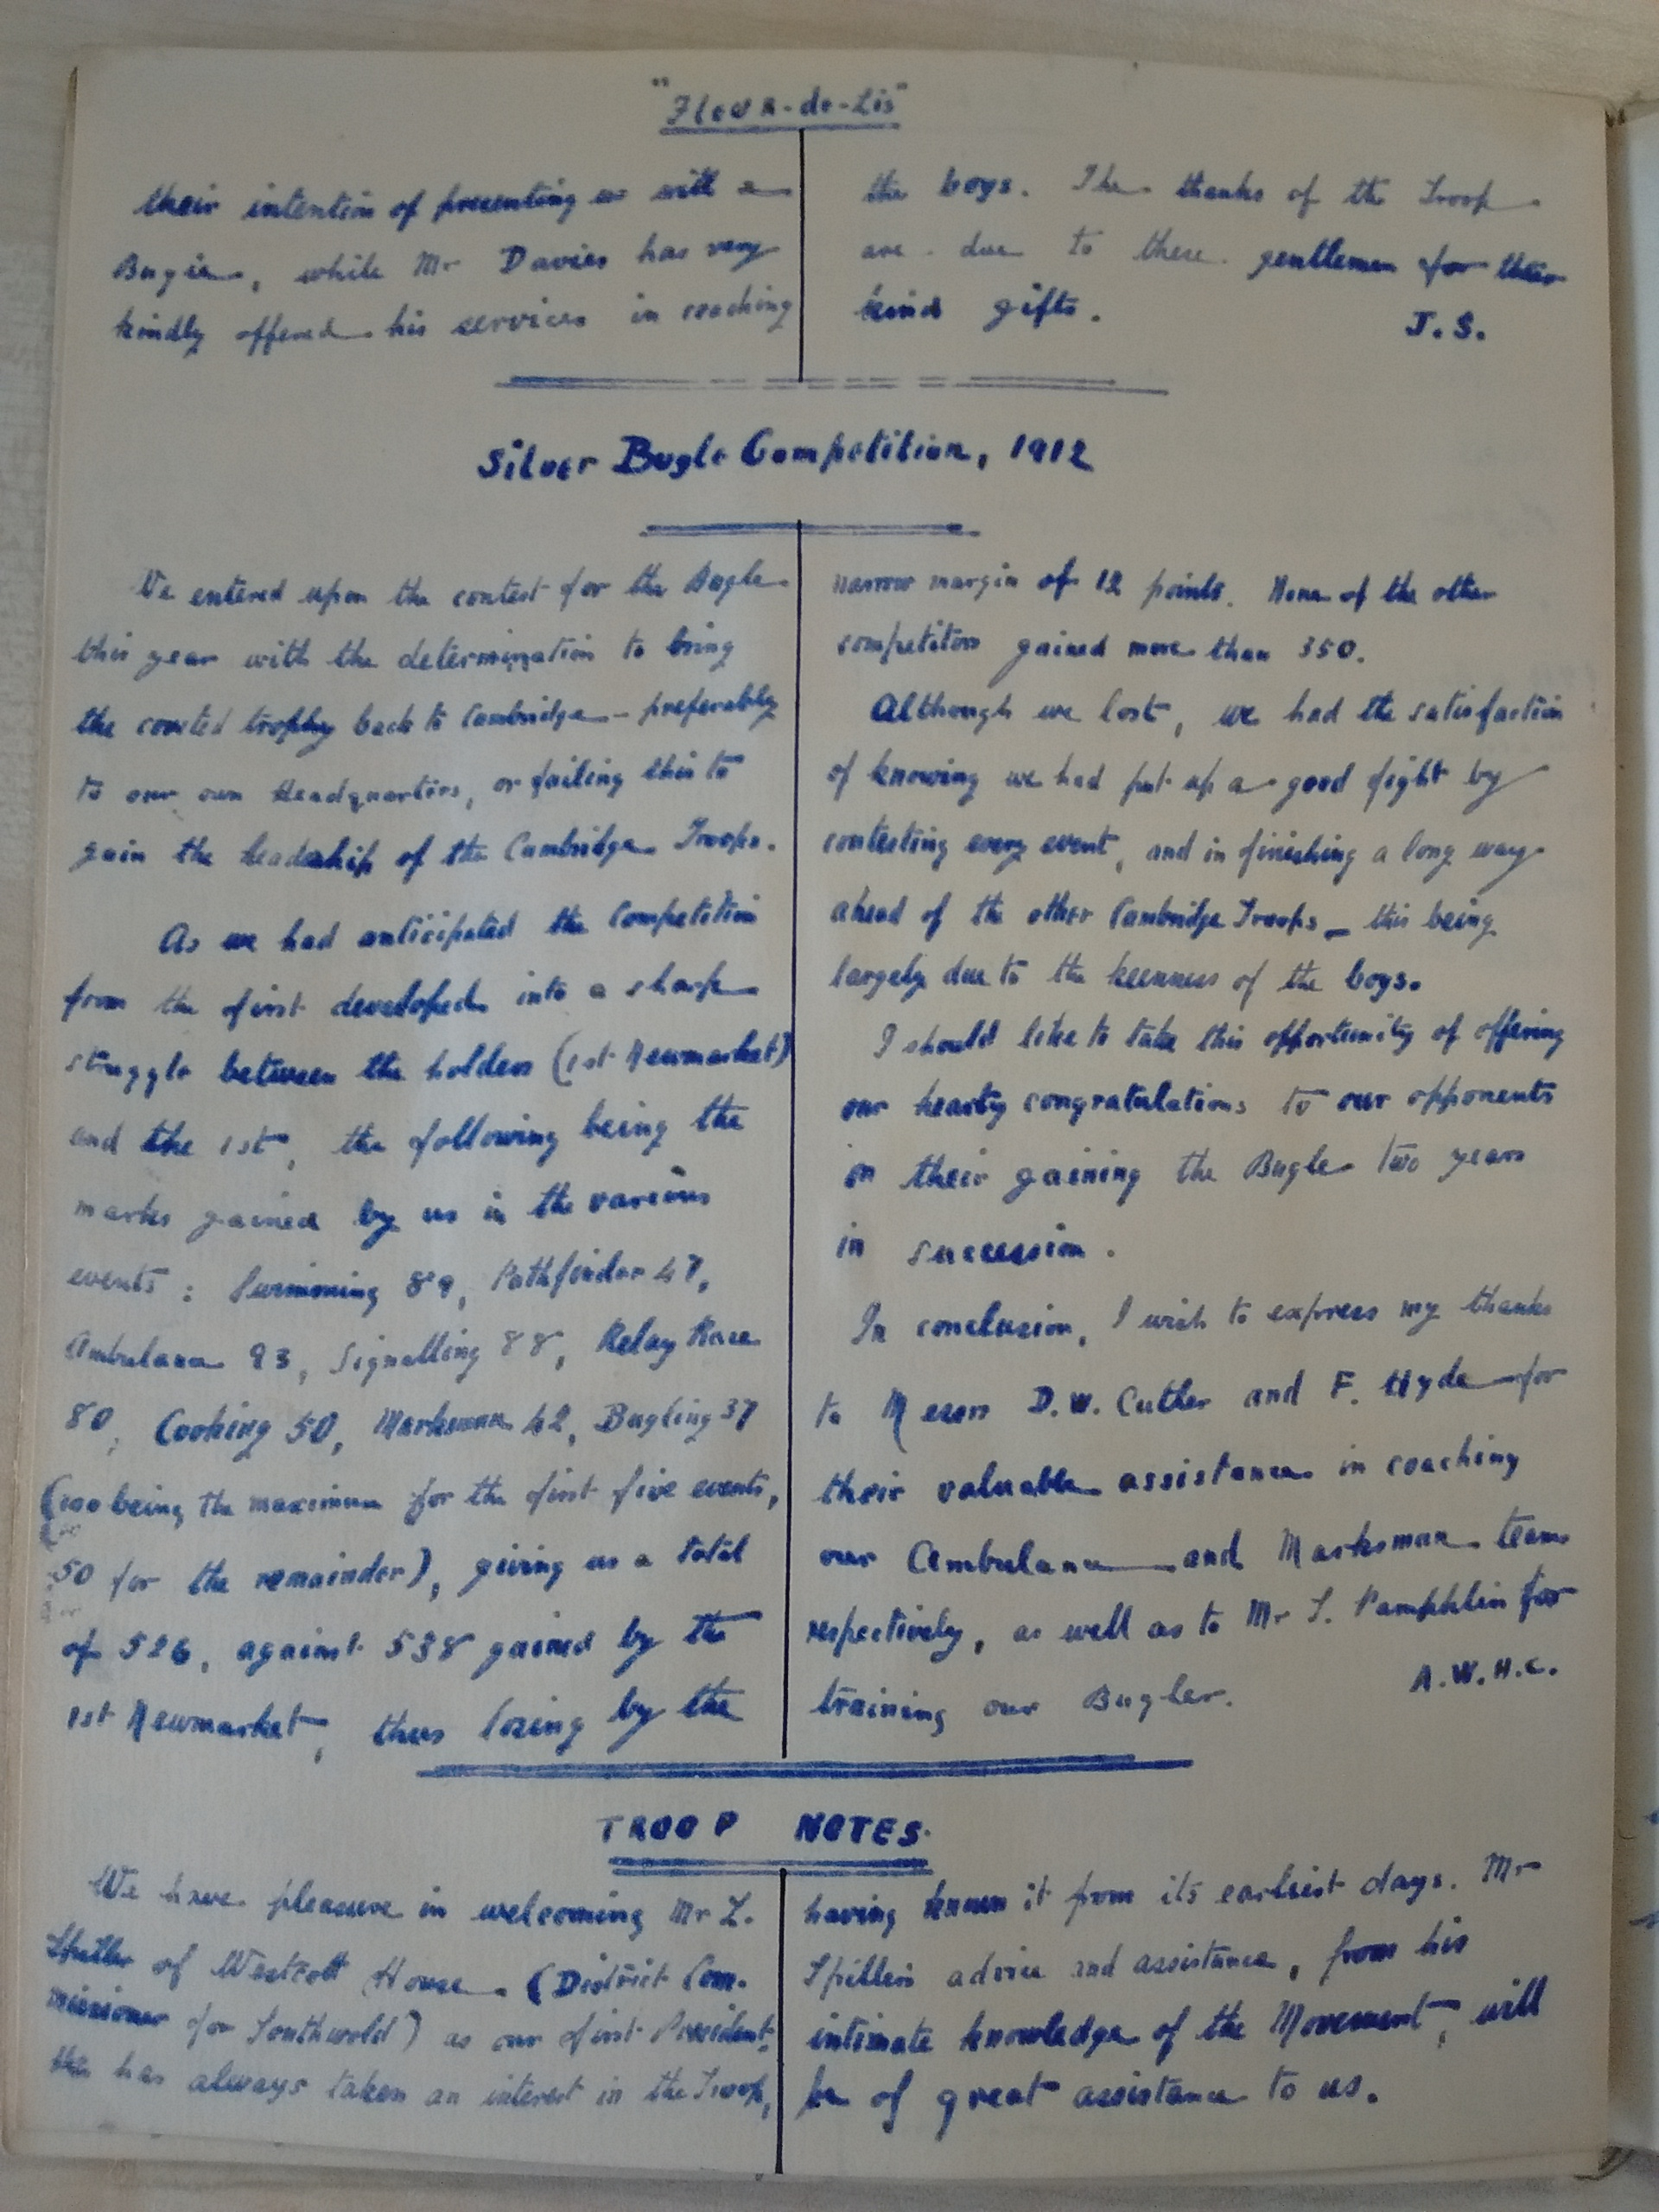 "Fleur-de-Lis"
their intention of presenting us with a
Bugle, while Mr Davies has very
kindly offered his services in coaching
the boys. The thanks of the Troop
are due to these gentlemen for their
kind gifts.
J. S.
Silver Bugle Competition, 1912
We entered upon the contest for the Bugle
this year with the determination to bring
the coveted trophy back to Cambridge - preferably
to our own Headquarters, or failing this to
gain the leadership of the Cambridge Troops.
As we had anticipated the Competition
from the first developed into a sharp
struggle between the holders (1st Newmarket)
and the 1st, the following being the
marks gained by us in the various
events : Swimming 89, Pathfinder 47,
Ambulance 93, Signalling 88, Relay Race
80, Cooking 50, Marksman 42, Bugling 37
(100 being the maximum for the first five events,
50 for the remainder), giving us a total
of 526, against 538 gained by the
1st Newmarket, thus losing by the
narrow margin of 12 points. None of the other
competitors gained more than 350.
Although we lost, we had the satisfaction
of knowing we had put up a good fight by
contesting every event, and in finishing a long way
ahead of the other Cambridge Troops - this being
largely due to the keenness of the boys.
I should like to take this opportunity of offering
our hearty congratulations to our opponents
on their gaining the Bugle two years
in succession.
In conclusion, I wish to express my thanks
to Messrs D.W. Cutler and F. Hyde for
their valuable assistance in coaching
our Ambulance and Marksman teams
respectively, as well as to Mr S. Pamphlin for
training our Bugler.
A.W.H.C.
TROOP NOTES.
We have pleasure in welcoming Mr L.
Spiller of Westcott House (District Com-
missioner for Southwold) as our first President.
He has always taken an interest in the Troop,
having known it from its earliest days. Mr
Spiller's advice and assistance, from his
intimate knowledge of the Movement, will
be of great assistance to us.